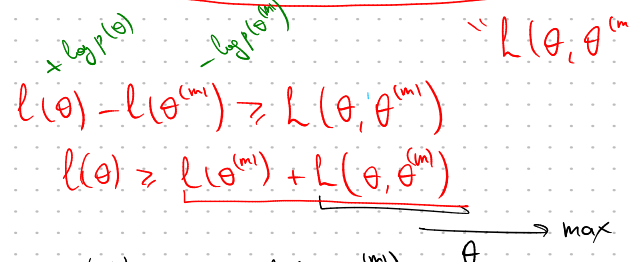 + log p(θ) − log p(θ^(m))
" h(θ, θ^(m
l(θ) − l(θ^(m)) ≥ h(θ, θ^(m))
l(θ) ≥ l(θ^(m)) + h(θ, θ^(m))
max
θ